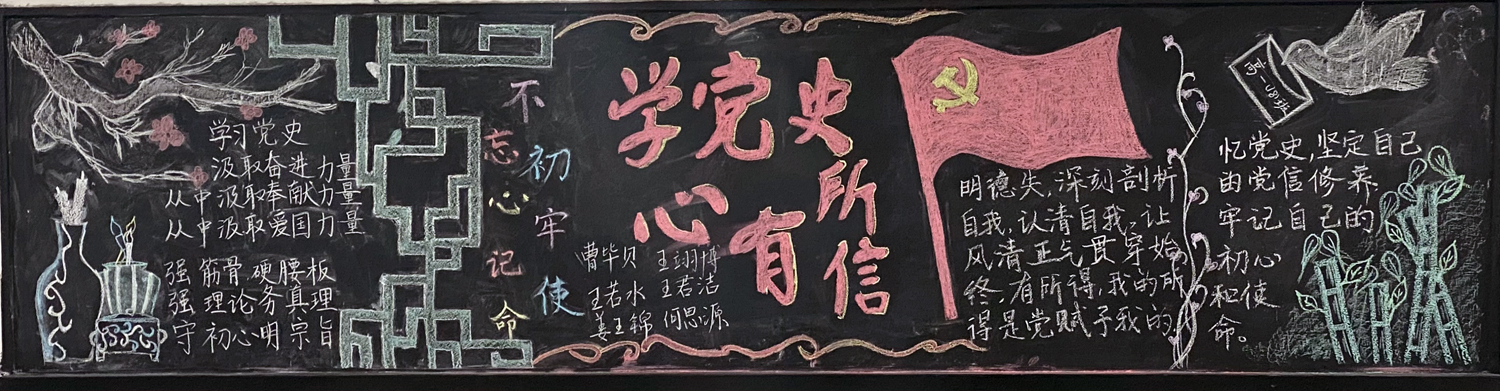 学习党史
汲取奋进力量
从中汲取奉献力量
从中汲取爱国力量
强筋骨硬腰板
强理论务真理
守初心明宗旨
不忘初心
牢记使命
学党史
心有所信
曹毕贝 王珝博
王若水 王若洁
姜王锦 何思源
明德失,深刻剖析
自我,认清自我。让
风清正气贯穿始
终,有所得,我的所
得是党赋予我的。
高一(8)班
忆党史,坚定自己
由党信修养
牢记自己的
初心
和使
命。